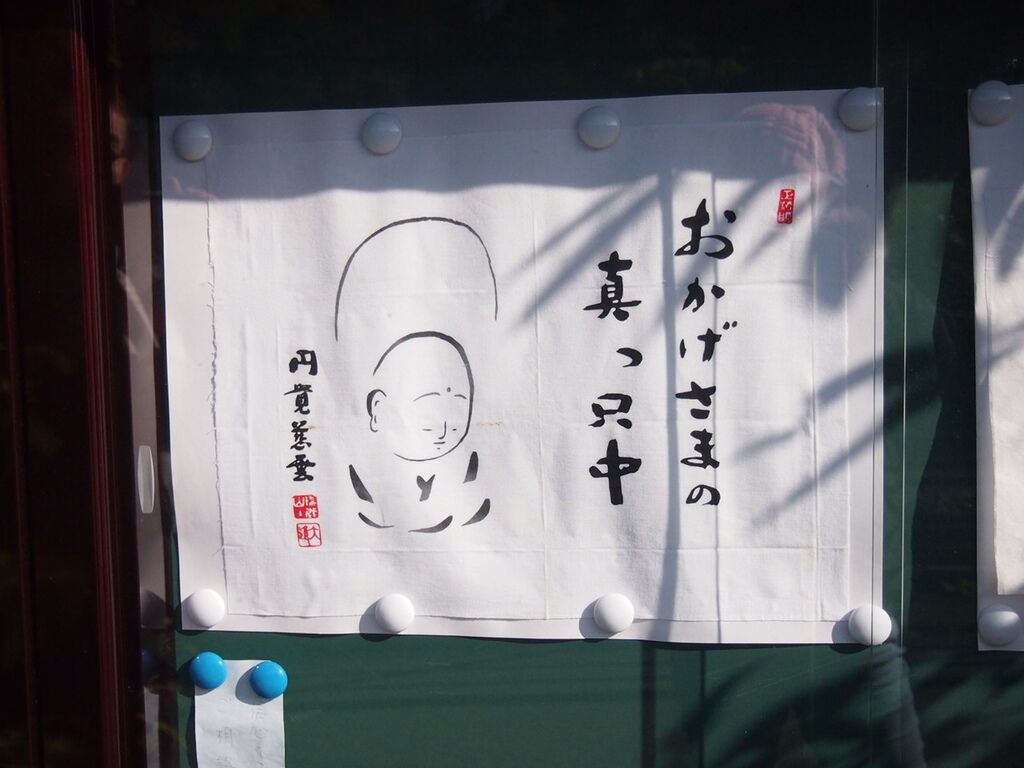 おかげさまの
真っ只中
円覚慈雲